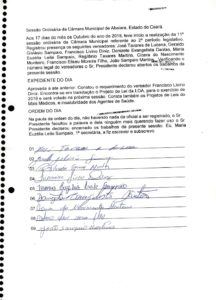 Sessão Ordinária da Câmara Municipal de Abaiara, Estado do Ceará.
Aos 17 dias do mês de Outubro do ano de 2018, teve início a realização da 11ª
sessão ordinária da Câmara Municipal referente ao 2º período legislativo.
Registrou presença os seguintes vereadores: José Tavares de Lucena, Geraldo
Gislayo Sampaio, Francisco Livino Diniz, Doriselio Evangelista Dantas, Maria
Eurélia Leite Sampaio, Reginaldo Tavares Martins, Cícera do Nascimento
Monteiro, Francisco Eliseu Moreira Filho, João Sampaio Martins. Verificando o
número legal de vereadores o Sr. Presidente declarou abertos os trabalhos da
presente sessão.
EXPEDIENTE DO DIA
Aprovada a ata anterior. Constou o requerimento do vereador Francisco Livino
Diniz. Encontra-se em tramitação o Projeto de Lei da LOA, para o exercício de
2019 e será votado na próxima sessão. Consta também os Projetos de Leis do
Mais Médicos, e Insalubridade dos Agentes de Saúde.
ORDEM DO DIA
Na pauta da ordem do dia, não havendo nada de oficial a ser registrado, o Sr.
Presidente facultou a palavra e dela ninguém mais querendo fazer uso o Sr.
Presidente declarou encerrado os trabalhos da presente sessão. Eu, Maria
Eurélia Leite Sampaio, 1ª secretária, a fiz escrever e subscrevo.
01
02
03
04 Francisco Livino Diniz
05 Maria Eurélia Leite Sampaio
06
07
08
09 João Sampaio Martins